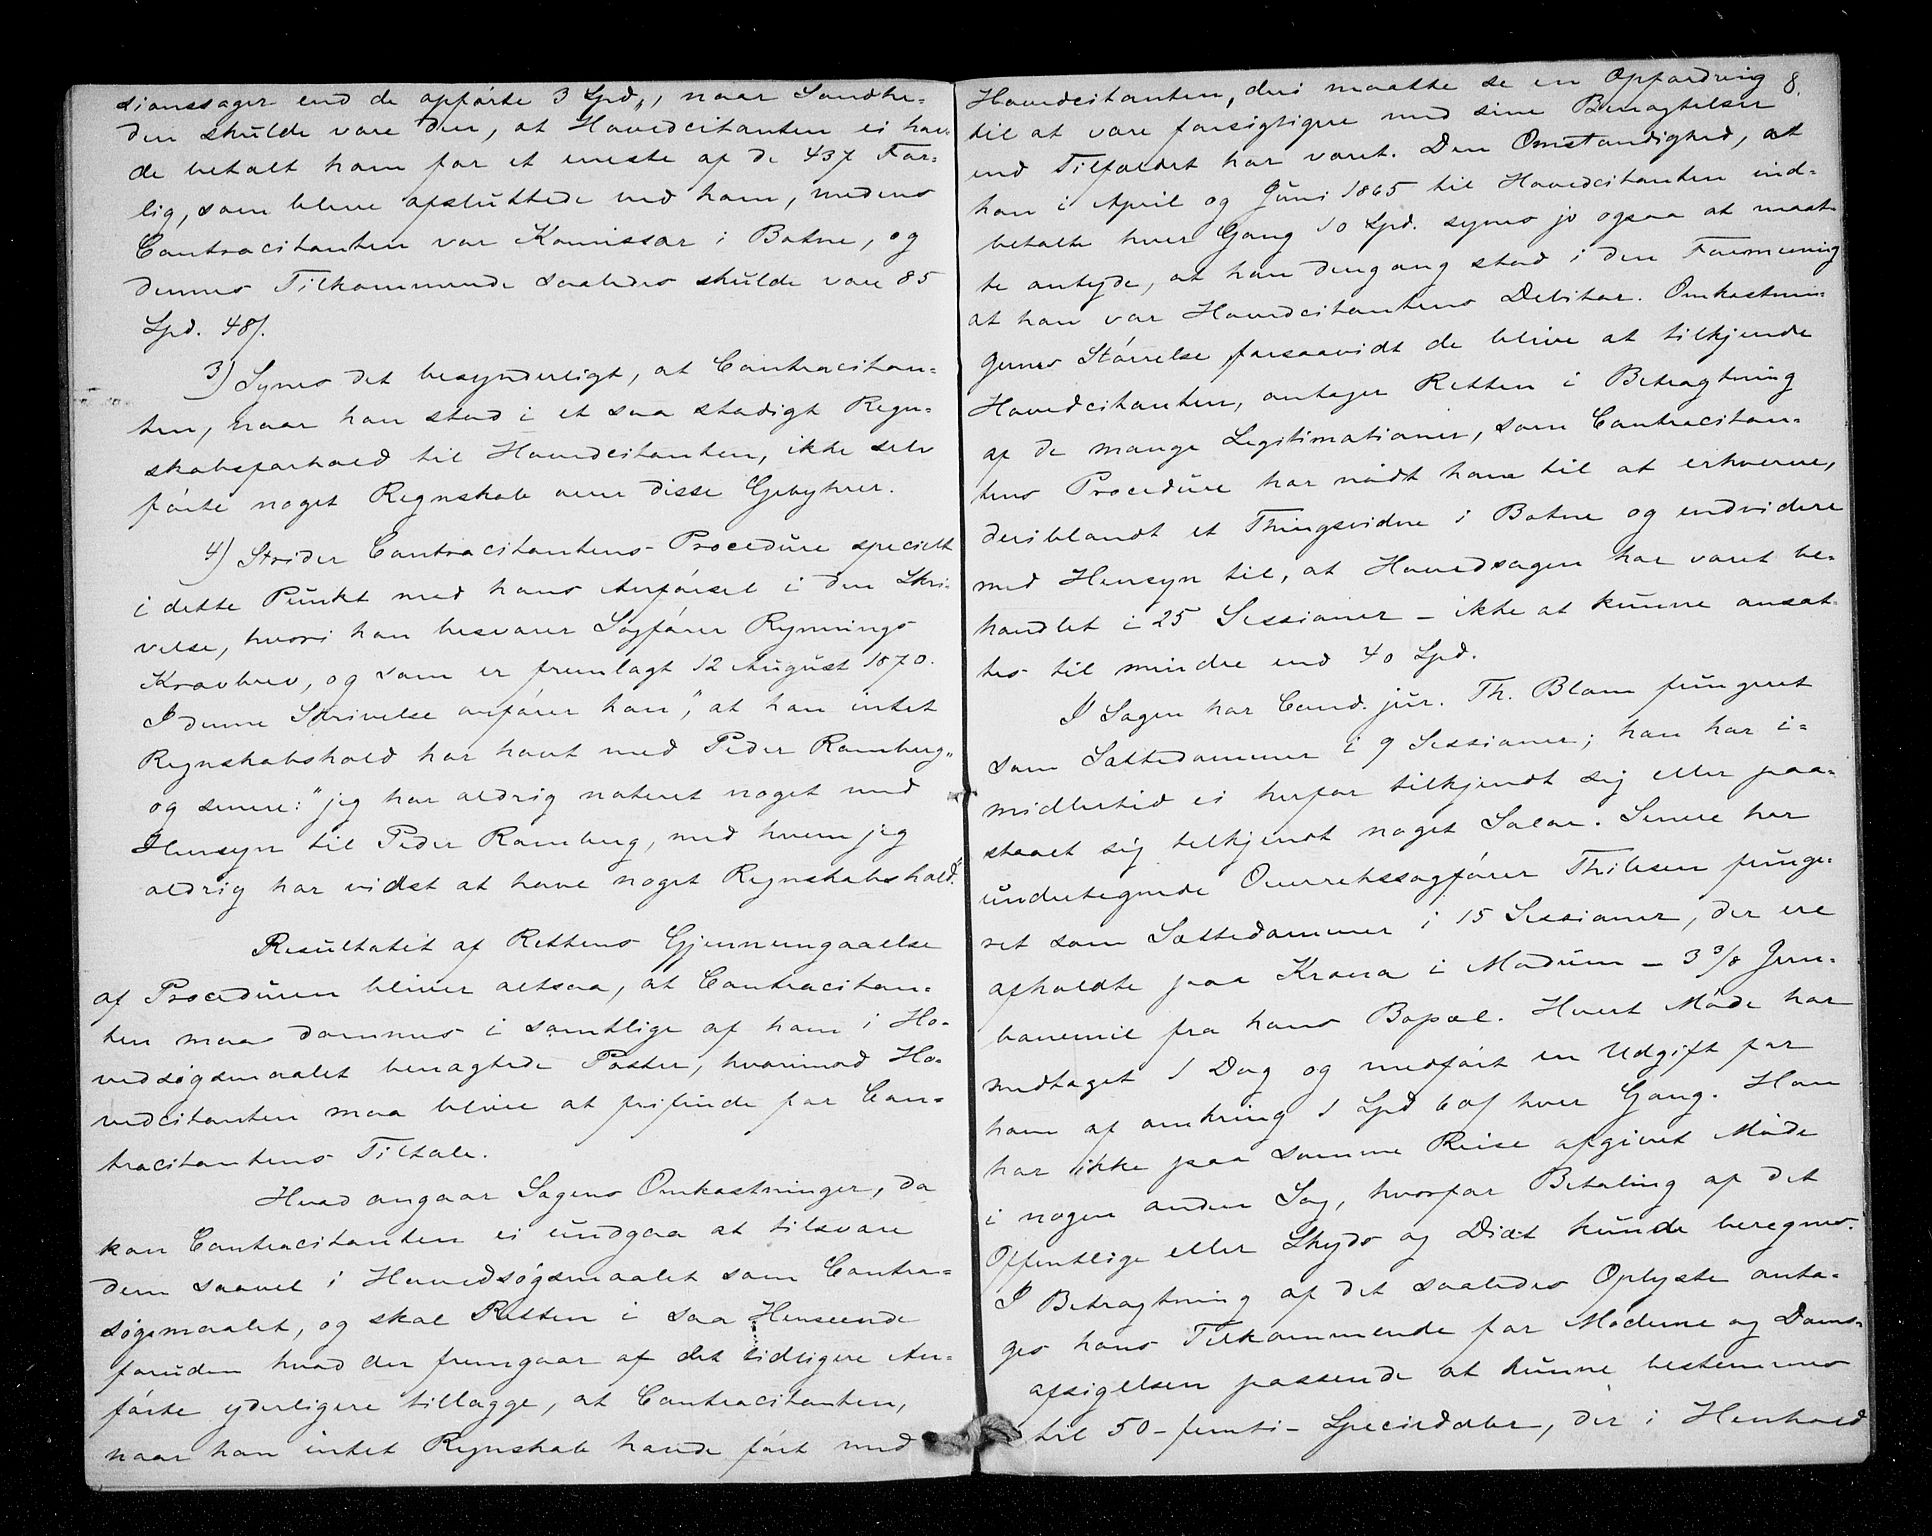 sionssager end de opførte 3 Spd„, naar Sandhe-
den skulde være den, at Hovedcitanten ei hav-
de betalt ham for et eneste af de 437 For-
lig, som bleve afsluttede ved ham, medens
Contracitanten var Komissær i Botne, og
dennes Tilkommende saaledes skulde være 85
Spd. 48/.
3) Synes det besynderligt, at Contracitan-
ten, naar han stod i et saa stadigt Regn-
skabsforhold til Hovedcitanten, ikke selv
førte noget Regnskab over disse Gebyhrer.
4) Strider Contracitantens Procedüre specielt
i dette Punkt med hans Anførsel i den Skri-
velse, hvori han besvarer Sagfører Rynnings
Kravbrev, og som er fremlagt 12 August 1870.
I denne Skrivelse anfører han", at han intet
Regnskabshold har havt med Peder Ramberg„
og senere: "jeg har aldrig noteret noget med
Hensyn til Peder Ramberg, med hvem jeg
aldrig har vidst at have noget Regnskabshold."
Resultatet af Rettens Gjennemgaaelse
af Proceduren bliver altsaa, at Contracitan-
ten maa dømmes i samtlige af ham i Ho-
vedsøgsmaalet benægtede Poster, hvorimod Ho-
vedcitanten maa blive at frifinde for Con-
tracitantens Tiltale.
Hvad angaar Sagens Omkostninger, da
kan Contracitanten ei undgaa at tilsvare
dem saavel i Hovedsøgsmaalet som Contra-
søgsmaalet, og skal Retten i saa Henseende
foruden hvad der fremgaar af det tidligere An-
førte yderligere tillægge, at Contracitanten,
naar han intet Regnskab havde ført med
Hovedcitanten, deri maatte se en Opfordring 8.
til at være forsigtigere med sine Benægtelser
end Tilfældet har været. Den Omstændighed, at
han i April og Juni 1865 til Hovedcitanten ind-
betalte hver Gang 10 Spd. synes jo ogsaa at maat-
te antyde, at han dengang stod i den Formening
at han var Hovedcitantens Debitor. Omkostnin-
gernes Størrelse forsaavidt de blive at tilkjende
Hovedcitanten, antager Retten i Betragtning
af de mange Legitimationer, som Contracitan-
tens Procedüre har nødt ham til at erhverve,
deriblandt et Thingsvidne i Botne og endvidere
med Hensyn til, at Hovedsagen har været be-
handlet i 25 Sessioner – ikke at kunne ansæt-
tes til mindre end 40 Spd.
I Sagen har Cand. jur. Th. Blom fungeret
som Sættedommer i 9 Sessioner; han har i-
midlertid ei herfor tilkjendt sig eller paa-
staaet sig tilkjendt noget Salær. Senere har
undertegnede Overretssagfører Thilesen funge-
ret som Sættedommer i 15 Sessioner, der ere
afholdte paa Krona i Modum – 3 3/8 Jern-
banemil fra hans Bopæl. Hvert Møde har
medtaget 1 Dag og medført en Udgift for
ham af omkring 1 Spd 60/ hver Gang. Han
har ikke paa samme Reise afgivet Møde
i nogen anden Sag, hvorfor Betaling af det
Offentlige eller Skyds og Diæt kunde beregnes.
I Betragtning af det saaledes Oplyste anta-
ges hans Tilkommende for Møderne og Doms-
afsigelsen passende at kunne bestemmes
til 50 – femti – Speciedaler, der i Henhold